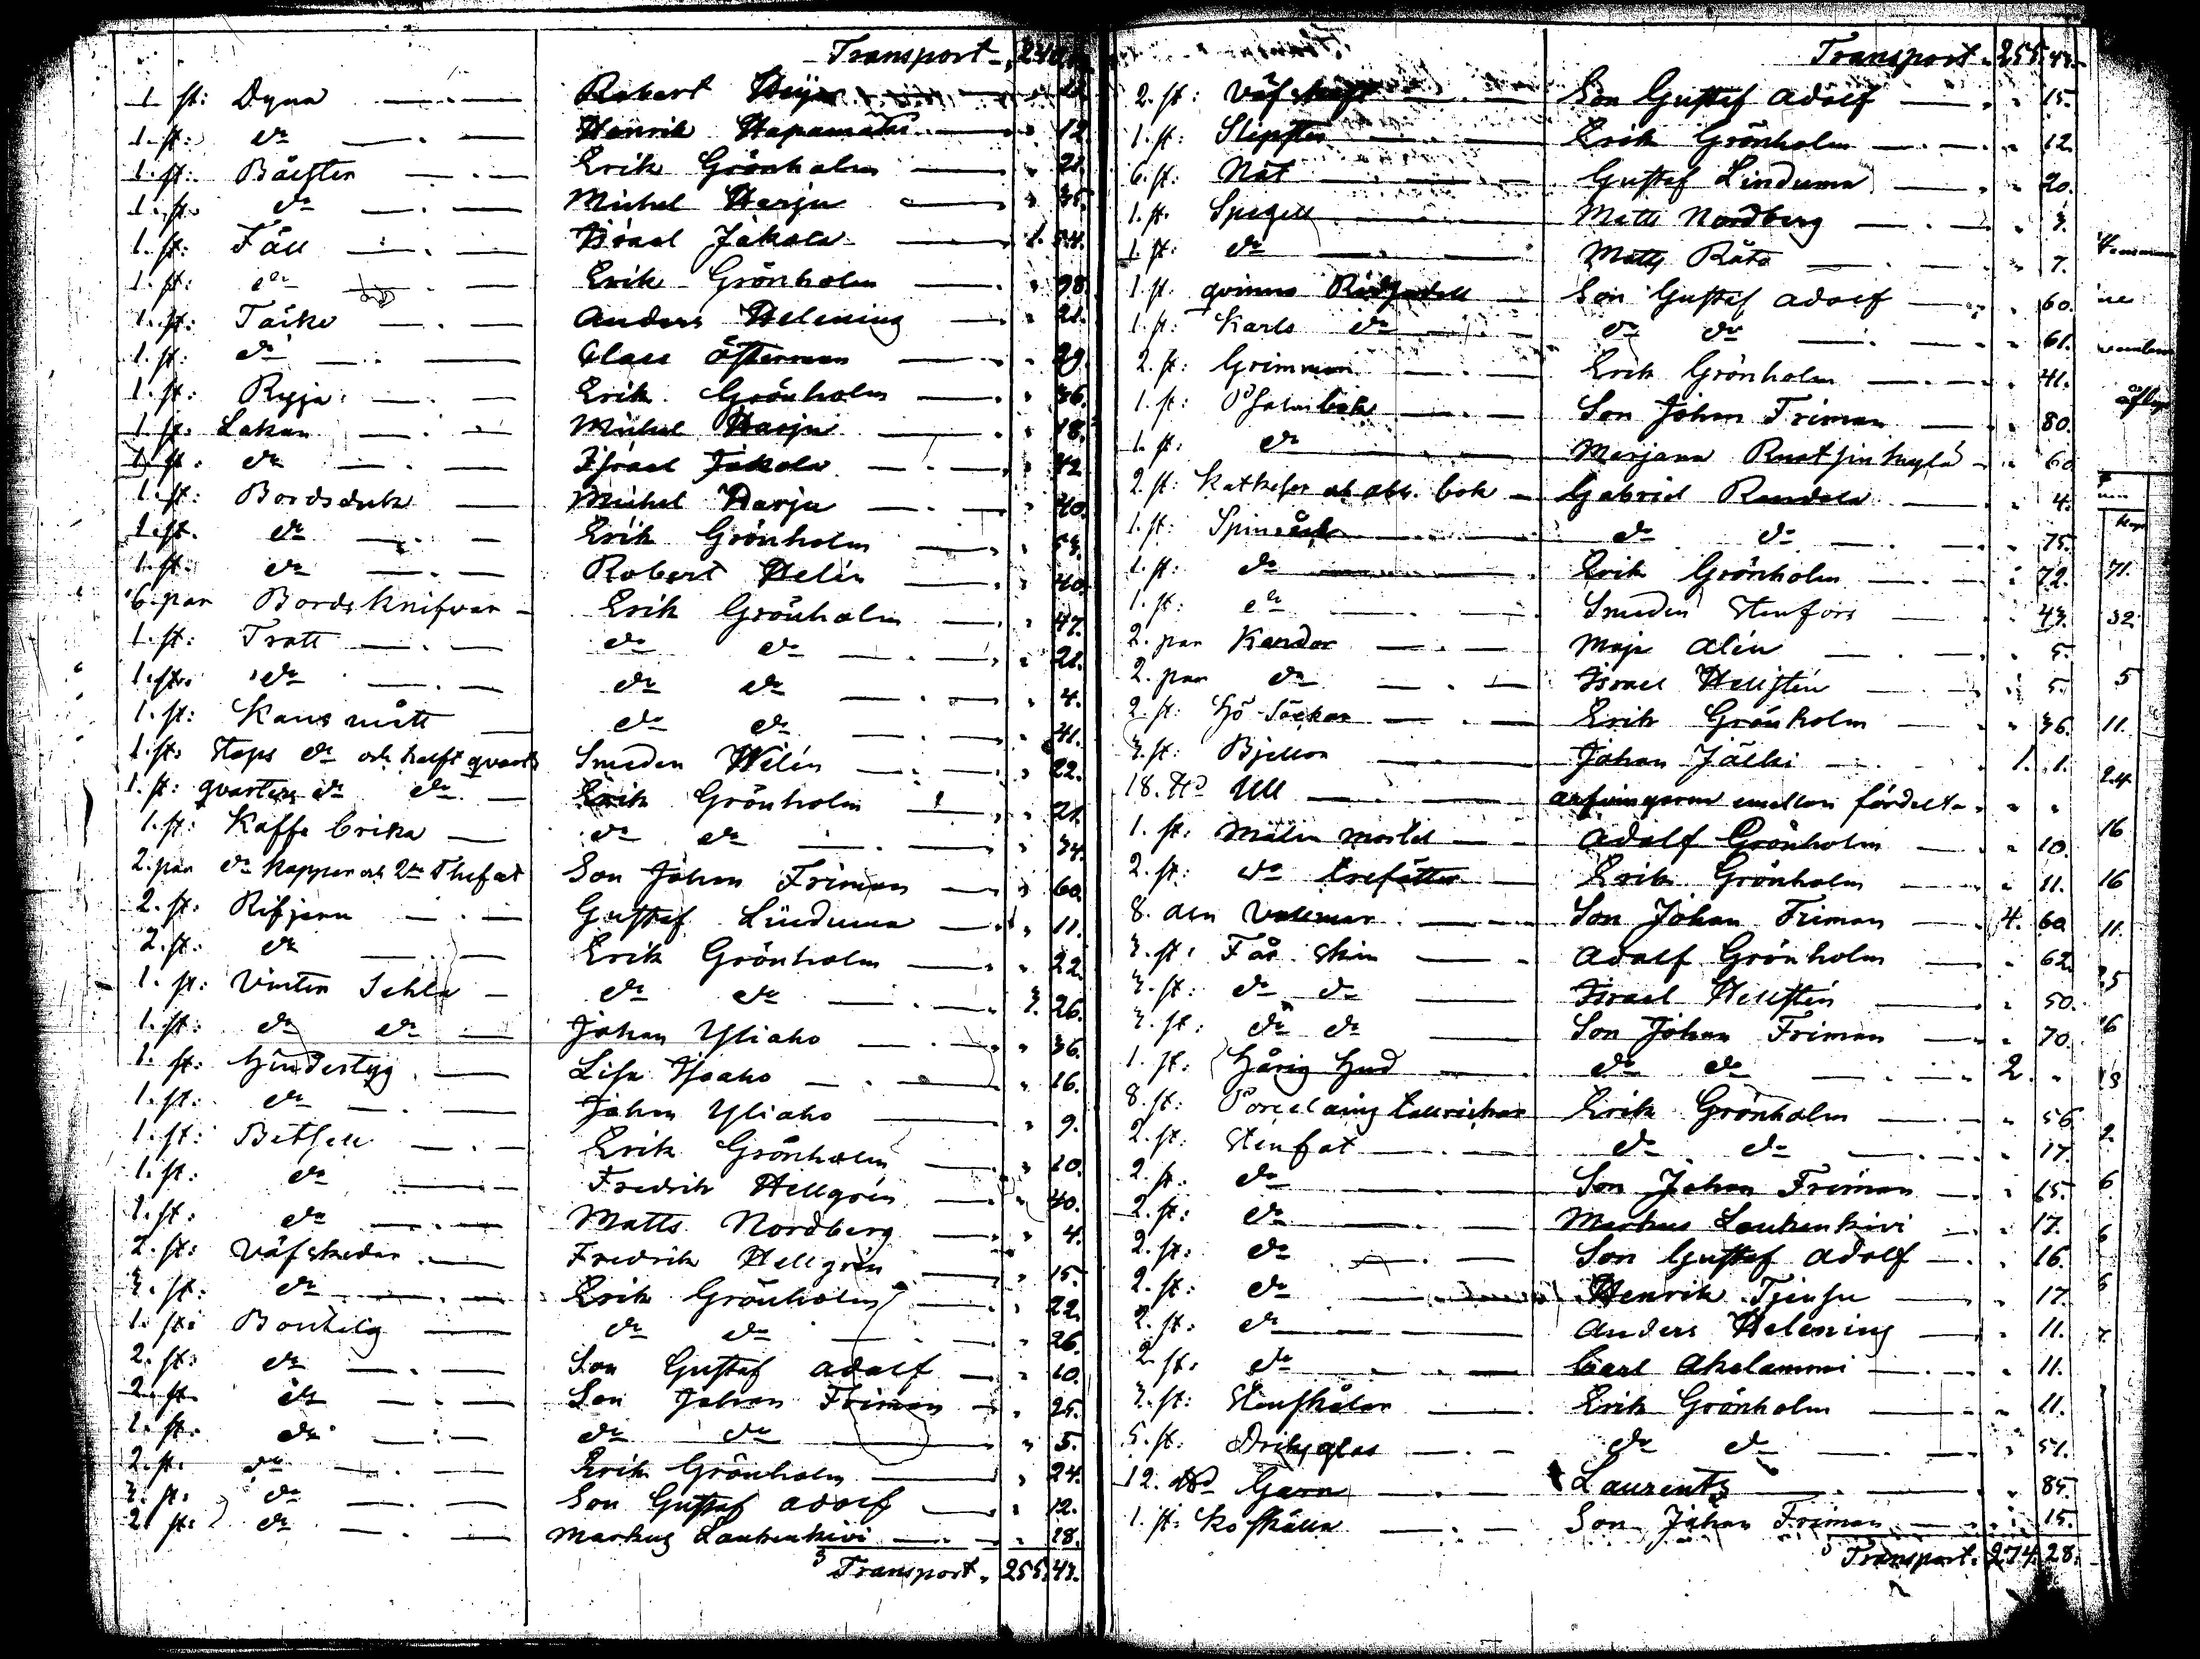 Transport
1 st: Dyna Robert
1. st: do Henrik 12.
1. st: Bålster Erik Grönholm 21.
1. st. do Michel Harju 35.
1. st: Fäll Israel Jakola 1. 54.
1. st: do Erik Grönholm 98.
1. st: Täcke Anders Helening 21.
1. st: do Claes Österman 29.
1. st: Ryja Erik Grönholm 36.
1. st. Lakan Michel Harju 18.
1 st. do Israel Jakola 42.
1. st: Bordsduk Michel Harju 40.
1. st. do Erik Grönholm 53.
1. st. do Robert Helin 40.
6. par Bordsknifvar Erik Grönholm 47.
1. st: Tratt do do 21.
1. st. do do do 4.
1. st: Kans mått do do 41.
1. st. Stops do och halft qvart Smeden Welin 22.
1. st: qvarters do do Erik Grönholm 21.
1. st. Kaffe brika do do 34.
2. par do koppar och 2 Thefat Son Johan Friman 60.
2. st: Rifjern Gustaf Linduma 11.
2. st: do Erik Grönholm 22.
1. st: Vinter Sehla do do 3. 26.
1. st: do do Johan Yliaho 36.
1. st: Lisa Isoaho 16.
1. st: do Johan Yliaho 9.
1. st: Betsell Erik Grönholm 20.
1. st: do Fredrik Hellgren 40.
1. st: do Matts Nordberg 4.
2. st: Väfskedar Fredrik Hellgren 15.
3. st: do Erik Grönholm 22.
1. st: do do 26.
2. st: do Son Gustaf Adolf 10.
2. st. do Son Johan Friman 25.
2. st. do do do 5.
2. st. do Erik Grönholm 24.
3. st. do Son Gustaf Adolf 12.
2. st: do Markus Laukenkivi 18.
Transport. 255. 43.
Transport. 255. 43.
2. st: Son Gustaf Adolf 15.
1. st: Slipsten Erik Grönholm 12.
6. st: Nät Gustaf Linduma 20.
1. st. Spegell Matts Nordberg 3.
1. st: do Matts Räto 7.
1 st. qvinno Son Gustaf Adolf 60.
1. st: Karls do do do 61.
2. st: Grimmor Erik Grönholm 41.
1. st: Psalmbok Son Johan Friman 80.
1. st: do Marjana 60.
2. st: och abc. bok Gabriel 4.
1. st: Spinråck do do 75.
1. st: do Erik Grönholm 72.
1. st: do Smeden Stenfors 43.
2. par Kardor Maja Alin 5.
2. par do Israel Hellsten 5.
2 st: Hö Säckar Erik Grönholm 36.
3. st: Bjellror Johan Jälli 1. 1.
18. Ull arfvingarna emellan fördelta
1. st: Malm mortel Adolf Grönholm 10.
2. st: do trefötter Erik Grönholm 11.
8. aln Vallmar Son Johan Friman 4. 60.
3. st: Får Skin Adolf Grönholm 62.
3. st: do do Israel Hellsten 50.
3. st: do do Son Johan Friman 70.
1. st. Hårig Hud do do 2.
8. st: Porcelaing tallrickar Erik Grönholm 56.
2. st. Stenfat do do 17.
2. st. do Son Johan Friman 15.
2. st: do Markus Laukenkivi 17.
2. st: do Son Gustaf Adolf 16.
2. st: do Henrik Tjensu 17.
2. st. do Anders Helening 11.
2. st. do Carl Ahelammi 11.
3. st: Stenskålar Erik Grönholm 11.
5. st. Driks glas do do 51.
12. Garn Laurents 85.
1. st: Ko skälla Son Johan Friman 15.
Transport. 274. 28.
71.
32.
5
11.
24
16
16
11.